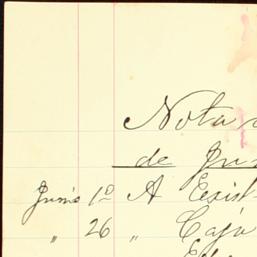 Nota
de Jun
Junio 1º A Exist
" 26 " Caja